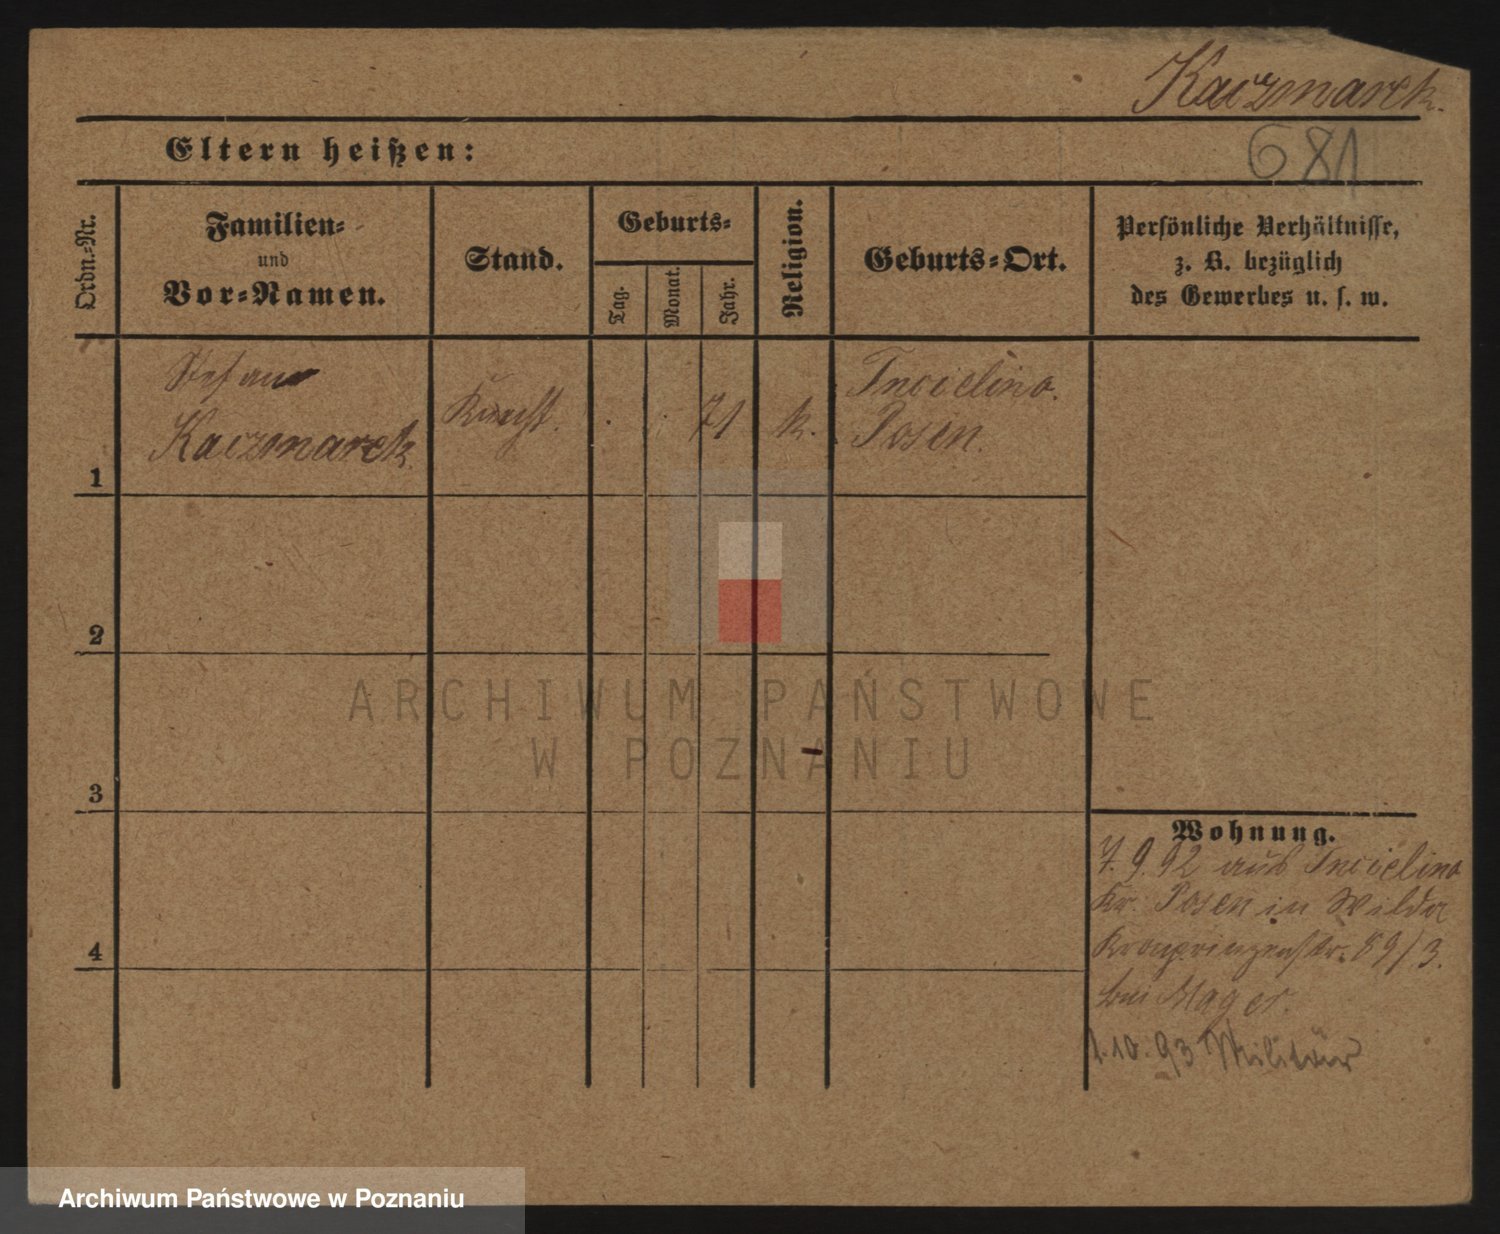 Kaczmarek.
681
Eltern heißen:
Ordn.-Nr.
Familien-
und
Vor-Namen.
Stand.
Geburts-
Tag.
Monat.
Jahr.
Religion.
Geburts-Ort.
Persönliche Verhältnisse,
z. B. bezüglich
des Gewerbes u. s. w.
1
Stefan
Kaczmarek.
Knecht.
71
k.
Posen.
2
3
4
Wohnung.
7.9.92 aus
Kr. Posen in Wilda
Kronprinzenstr. 89/3.
bei Mager.
1.10.93 Militär
ARCHIWUM PAŃSTWOWE
W POZNANIU
Archiwum Państwowe w Poznaniu